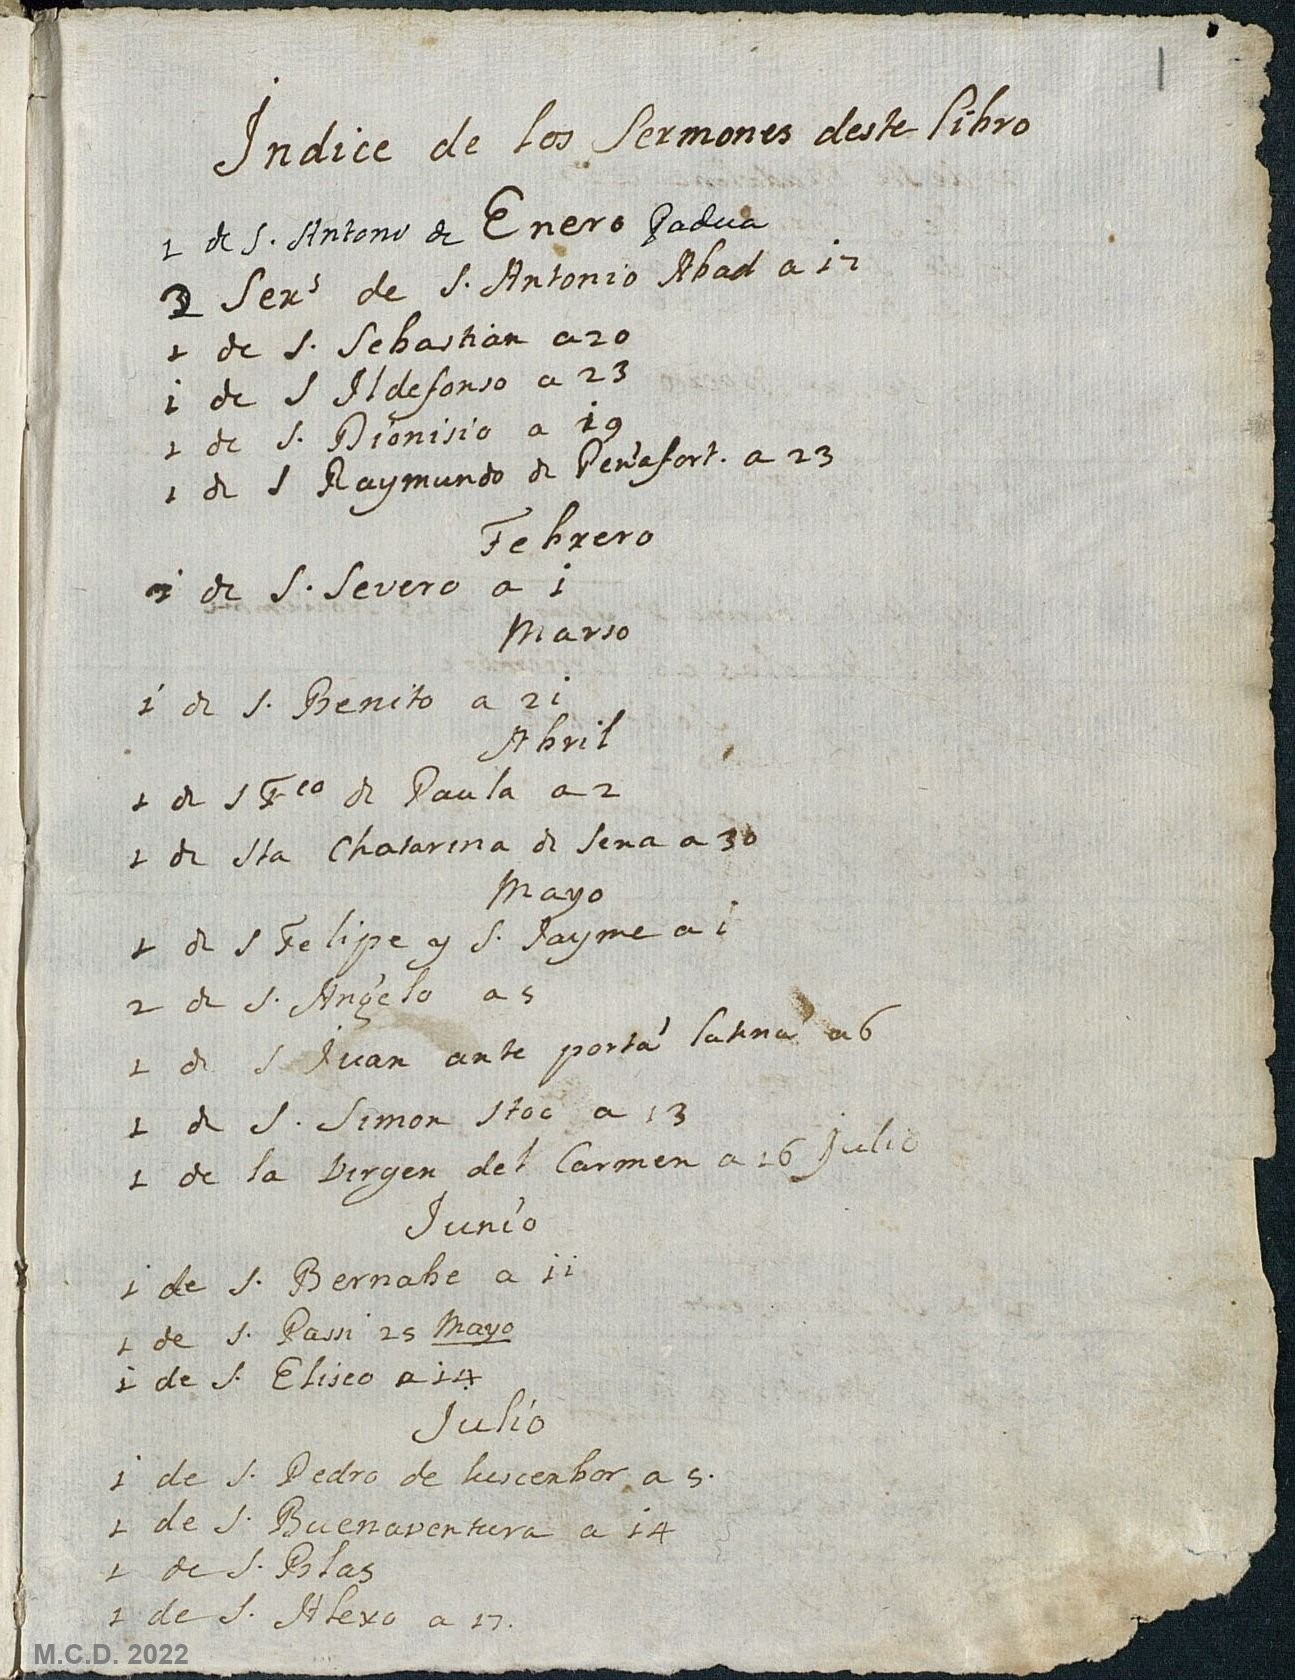 1
Indice de los Sermones deste libro
1 de S. Antonio de Enero Padua
Sers de S. Antonio Abad a 17
1 de S. Sebastian a 20
1 de S Ildefonso a 23
1 de S. Dionisio a 19
1 de S Raymundo de Peñafort. a 23
Febrero
1 de S. Severo a 1
Marso
1 de S. Benito a 21
Abril
1 de S Fco de Paula a 2
1 de Sta Chatarina de Sena a 30
Mayo
1 de S Felipe y S. Jayme a 1
2 de S. Angelo a 5
1 de S Juan ante porta latina a 6
1 de S. Simon Stoc a 13
1 de la Virgen del Carmen a 16 Julio
Junio
1 de S. Bernabe a 11
1 de S. Passi 25 Mayo
1 de S. Eliseo a 14
Julio
1 de S. Pedro de a 5.
1 de S. Buenaventura a 14
1 de S. Blas
1 de S. Alexo a 17.
M.C.D. 2022